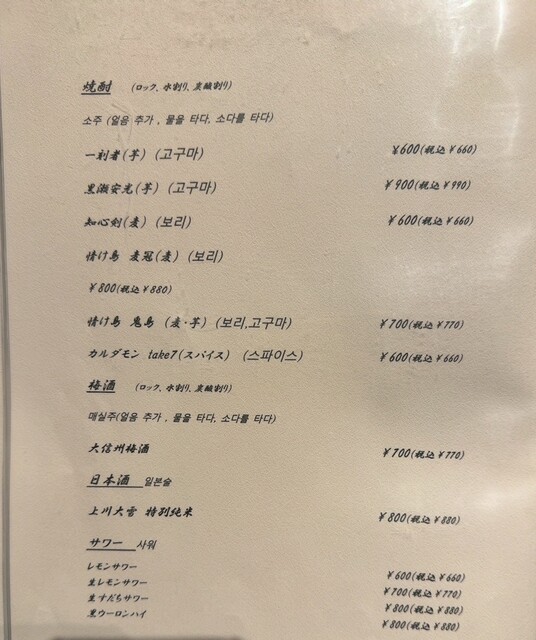 焼酎 (ロック、水割り、炭酸割り)
소주 (얼음 추가 , 물을 타다, 소다를 타다)
一刻者(芋) (고구마) ¥600(税込¥660)
黒瀬安光(芋) (고구마) ¥900(税込¥990)
知心剣(麦) (보리) ¥600(税込¥660)
情け島 麦冠(麦) (보리)
¥800(税込¥880)
情け島 鬼島 (麦・芋) (보리,고구마) ¥700(税込¥770)
カルダモン take7(スパイス) (스파이스) ¥600(税込¥660)
梅酒 (ロック、水割り、炭酸割り)
매실주(얼음 추가 , 물을 타다, 소다를 타다)
大信州梅酒 ¥700(税込¥770)
日本酒 일본술
上川大雪 特別純米 ¥800(税込¥880)
サワー 사워
レモンサワー ¥600(税込¥660)
生レモンサワー ¥700(税込¥770)
生すだちサワー ¥800(税込¥880)
黒ウーロンハイ ¥800(税込¥880)